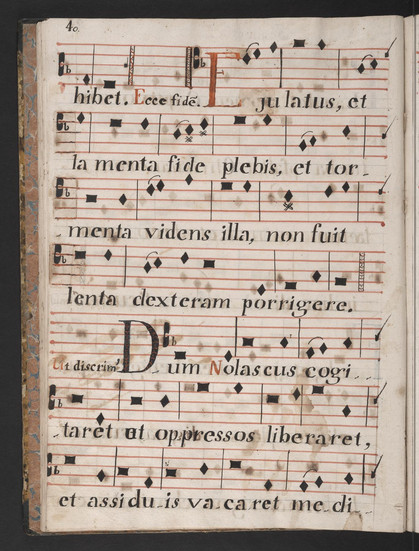 40.
hibet. Ecce fidē. Ejulatus, et
la menta fide plebis, et tor-
menta videns illa, non fuit
lenta dexteram porrigere.
Ut discrim. Dum Nolascus cogi-
taret ut oppressos liberaret,
et assiduis vacaret medi-